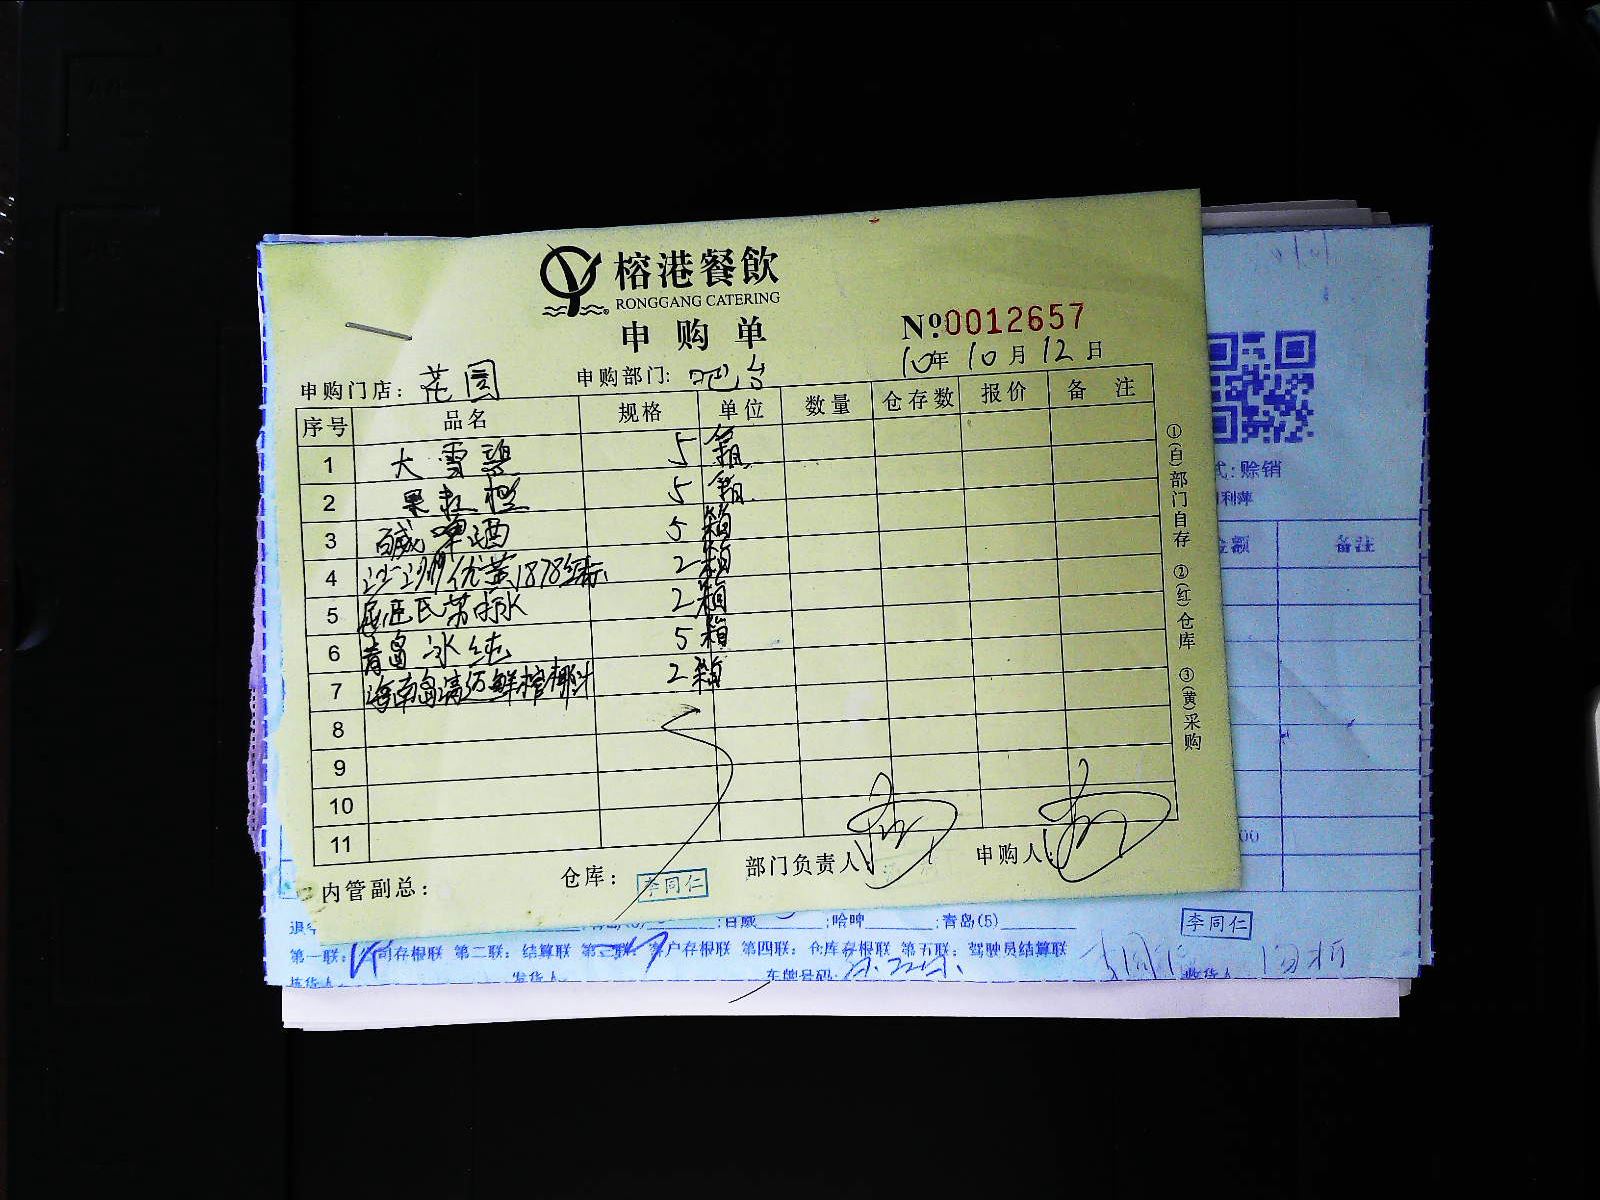 榕港餐飲
RONGGANG CATERING
申购单
№0012657
10年10月12日
申购门店：花园 申购部门：吧台
序号 品名 规格 单位 数量 仓存数 报价 备注
1 大雪碧 5 箱
2 果粒橙 5 箱
3 百威啤酒 5 箱
4 优黄1878红标 2 箱
5 屈臣氏苏打水 2 箱
6 青岛冰纯 5 箱
7 海南岛清沥鲜榨椰汁 2 箱
8
9
10
11
内管副总： 仓库： 李同仁 部门负责人： 申购人：
①(白)部门自存 ②(红)仓库 ③(黄)采购
式：赊销
利萍
金额 备注
00
百威 ;哈啤 ;青岛(5)
李同仁
第一联：公司存根联 第二联：结算联 第三联：客户存根联 第四联：仓库存根联 第五联：驾驶员结算联
发货人 车牌号码： 收货人